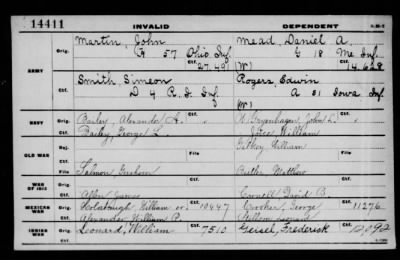 14411 INVALID DEPENDENT
Orig. Martin, John Mead, Daniel A.
G 57 Ohio Inf G 18 Me Inf
Ctf. 27.491 (W) 14.628
ARMY
Orig. Smith Simeon Rogers, Edwin
D 4 R. I. Inf A 31 Iowa Inf
Ctf. (W)
NAVY Orig. Bailey, Alexander A.
Ctf. Bailey, George L. Joice, William
Rej. Gethey William
OLD WAR
File File
Ctf. Salmon Gershom Butler Matthew
WAR OF 1812 Orig.
Ctf. Allen James Cornell David B.
MEXICAN WAR Orig. William or 10447 Crooker George 11276
Ctf. Alexander William P.
INDIAN WAR Orig. Leonard, William 7510 Geisel, Frederick 12092
Ctf.